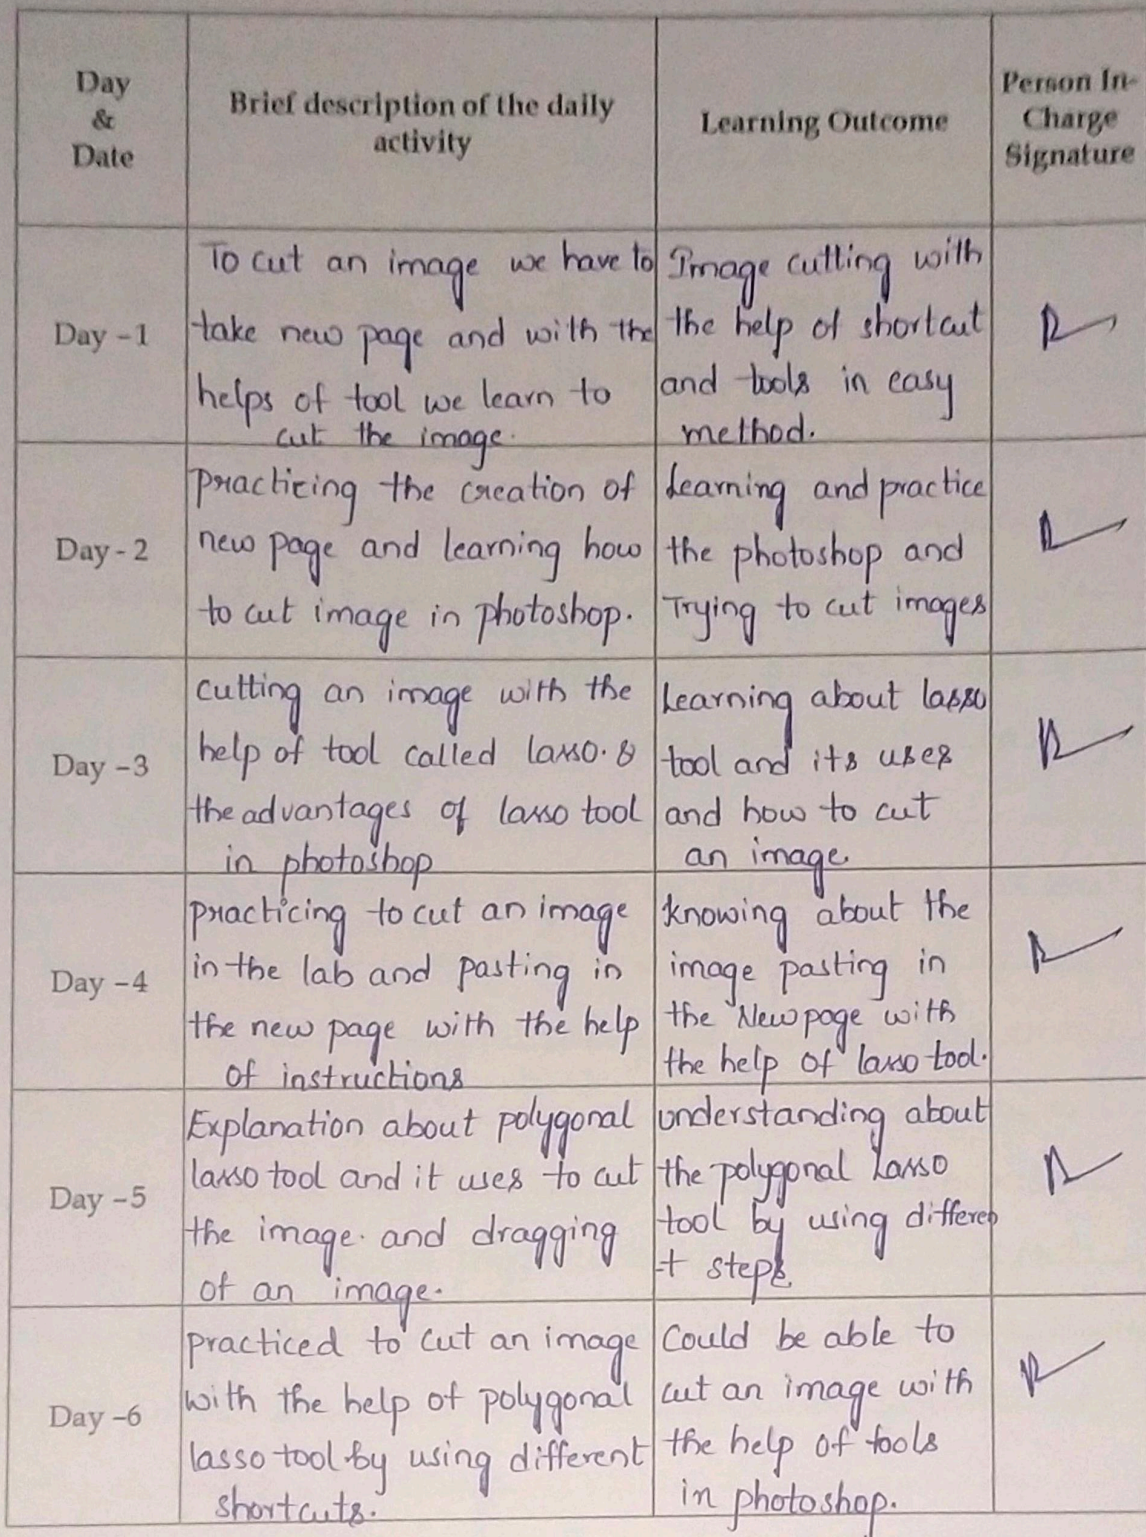 Day
&
Date
Brief description of the daily
activity
Learning Outcome
Person In-
Charge
Signature
Day -1
To cut an image we have to
take new page and with the
helps of tool we learn to
cut the image.
Image cutting with
the help of shortcut
and tools in easy
method.
Day - 2
Practicing the creation of
new page and learning how
to cut image in photoshop.
Learning and practice
the photoshop and
Trying to cut images
Day -3
cutting an image with the
help of tool called lasso. &
the advantages of lasso tool
in photoshop
Learning about lasso
tool and its uses
and how to cut
an image.
Day -4
practicing to cut an image
in the lab and pasting in
the new page with the help
of instructions
knowing about the
image pasting in
the New page with
the help of lasso tool.
Day -5
Explanation about polygonal
lasso tool and it uses to cut
the image. and dragging
of an image.
understanding about
the polygonal Lasso
tool by using differen
t steps.
Day -6
practiced to cut an image
with the help of polygonal
lasso tool by using different
shortcuts.
Could be able to
cut an image with
the help of tools
in photoshop.